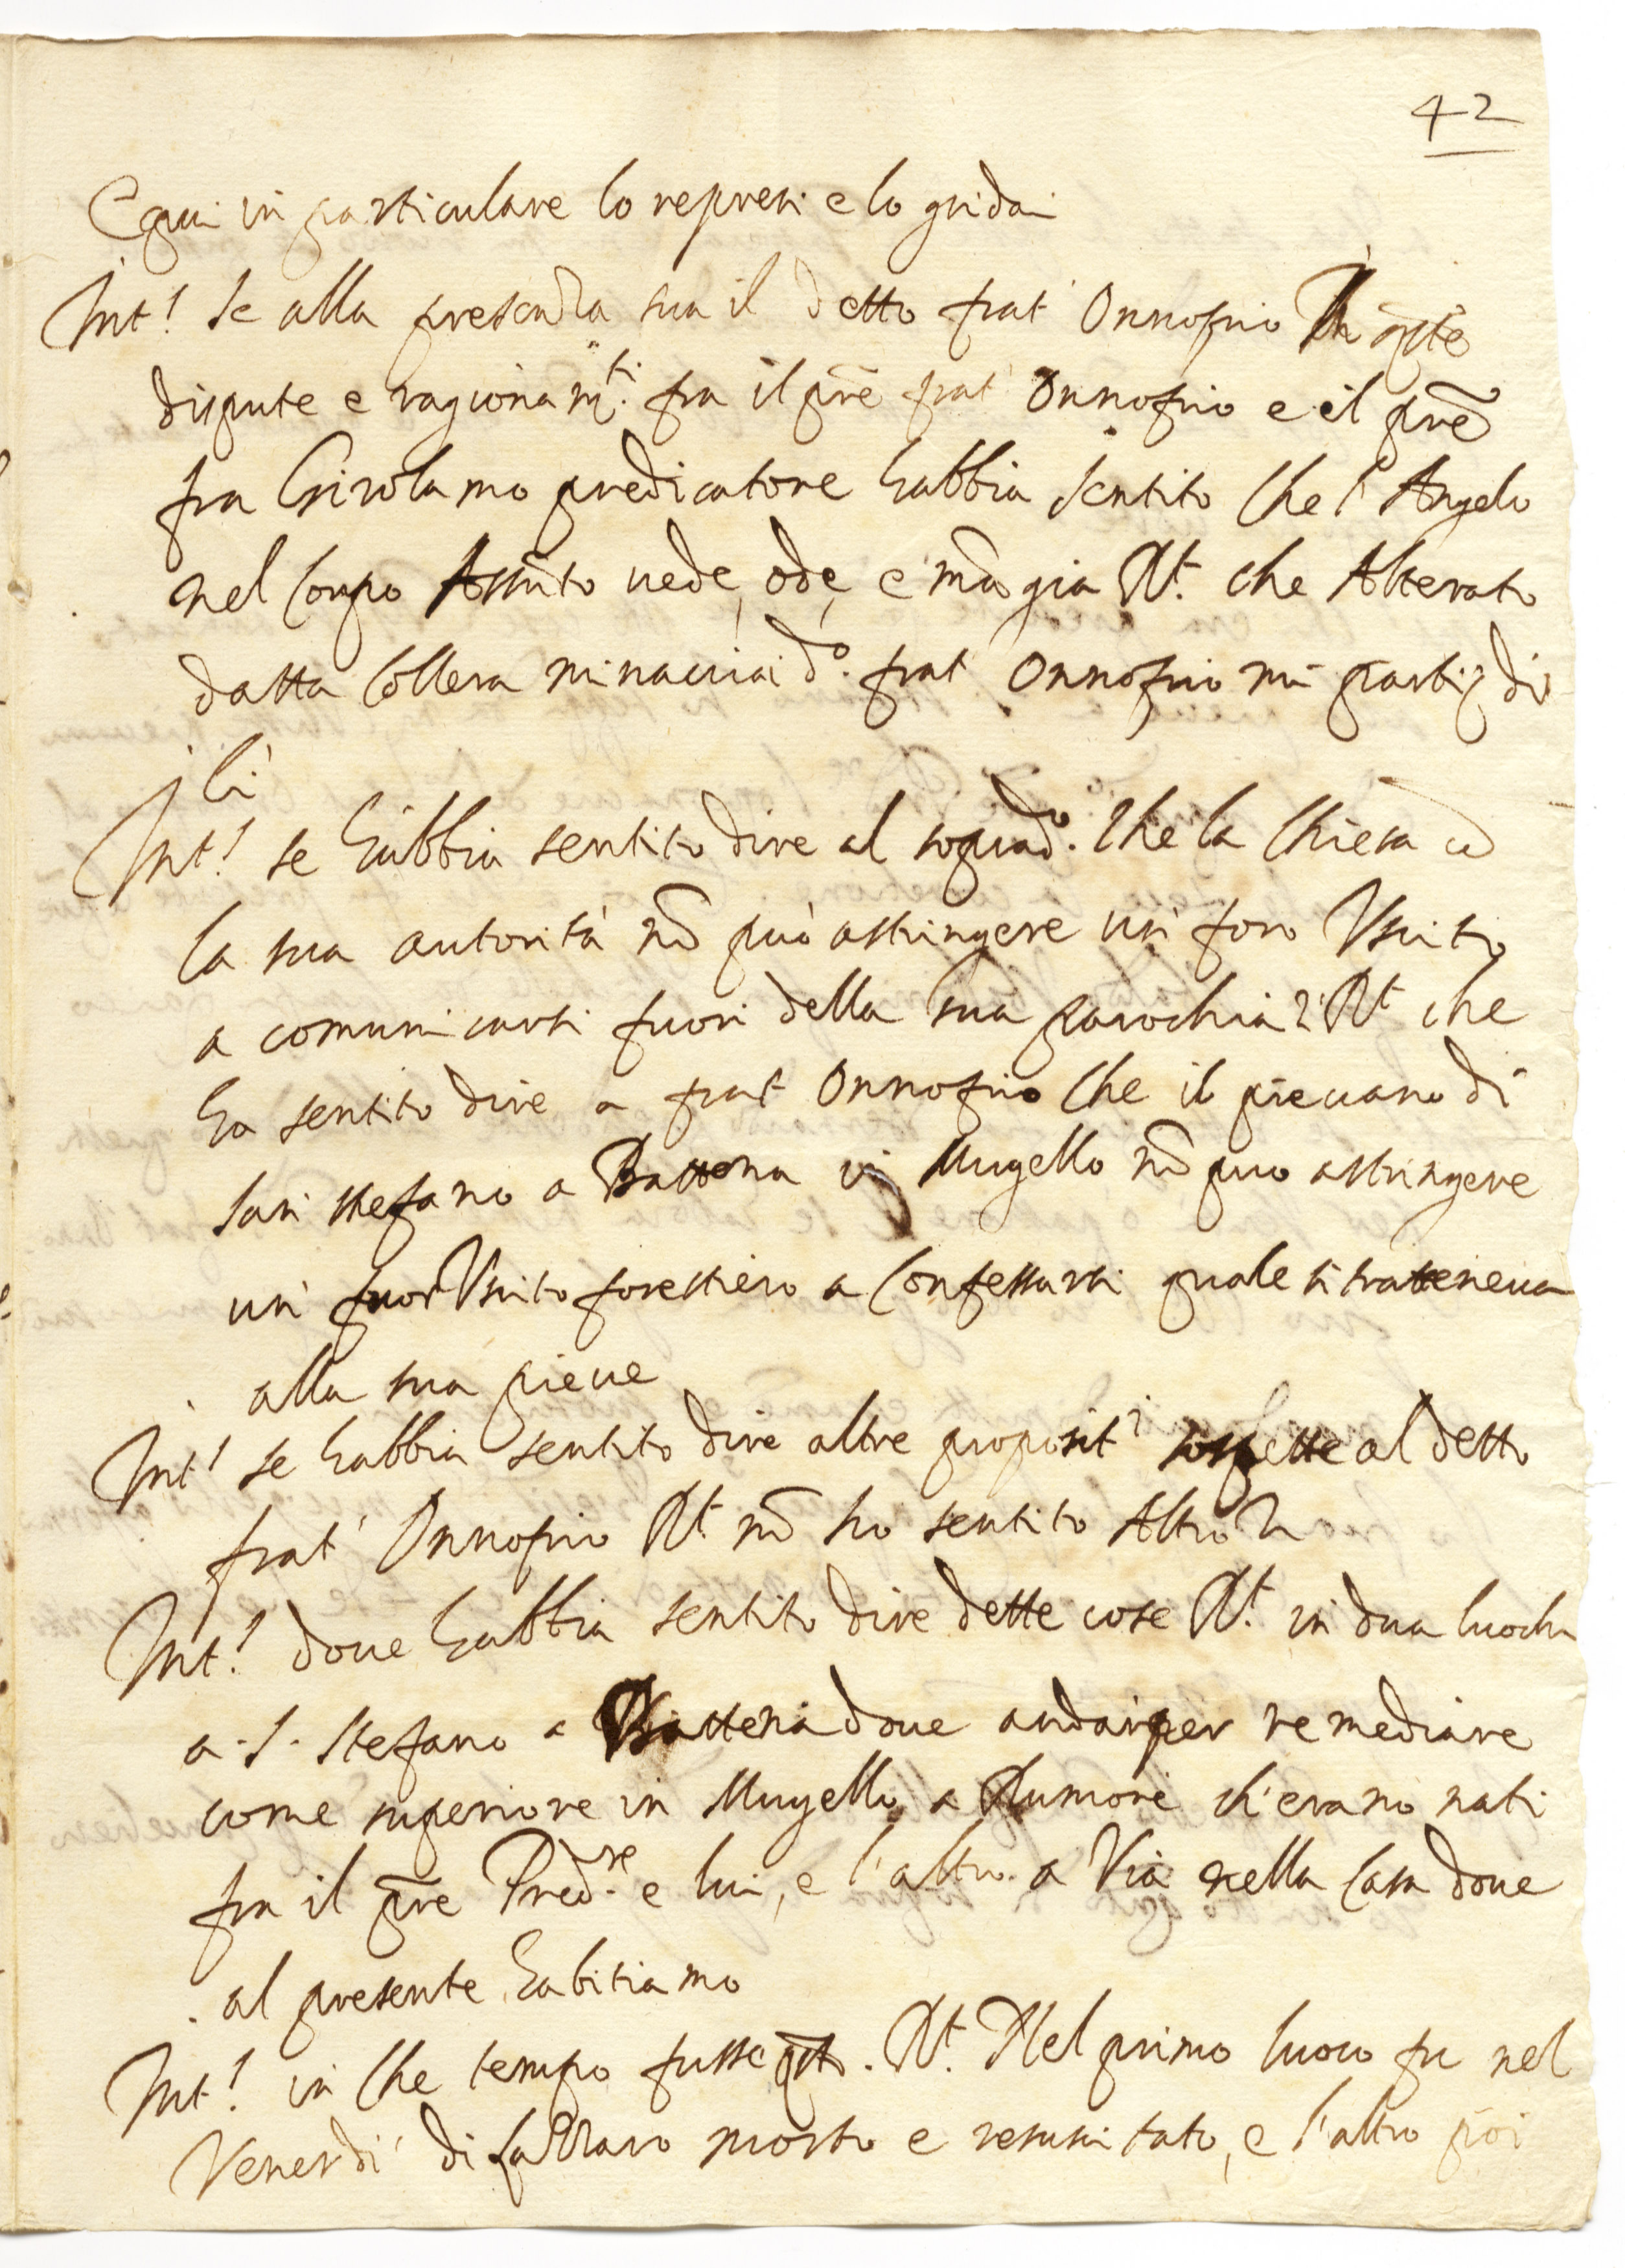 42
E qui in particulare lo represi e lo gridai
Int! se alla presenza sua il detto frat' Onnofrio In q̃ste
dispute e ragionam.ti fra il prẽ frat' Onnofrio e il prẽ
fra Girolamo predicatore habbia sentito che l'Angelo
nel corpo Assũto uede, ode, e mãgia R.t che Alterato
datta Collera minacciai d.o frat' Onnofrio mi parti di
lì
Int! se habbia sentito dire al soprad.o che la Chiesa cõ
la sua autorità nõ può astringere un' foro Uscito
a comunicarsi fuori della sua parochia? R.t che
ha sentito dire a frat Onnofrio che il pieuano di
San stefano a Battena in Mugello nõ puo astringere
un' fuor Uscito forestiero a Confessarsi quale si tratteneua
alla sua pieue
Int! se habbia sentito dire altre proposit.i sospette al detto
frat' Onnofrio R.t nõ ho sentito Altro
Int! doue habbia sentito dire dette cose R.t in dua luochi
a. S. Stefano a Battena doue andai per remediare
come superiore in Mugello a Rumori ch'erano nati
fra il prẽ Pred.re e lui, e l'altro a Via nella Casa doue
al presente habitiamo
Int! in che tempo fusse q̃sto. R.t Nel primo luoco fu nel
Venerdi' di lazzaro morto e resuscitato, e l'altro poi